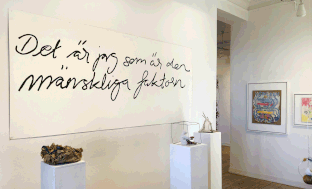 Det är jag som är den
mänskliga faktorn